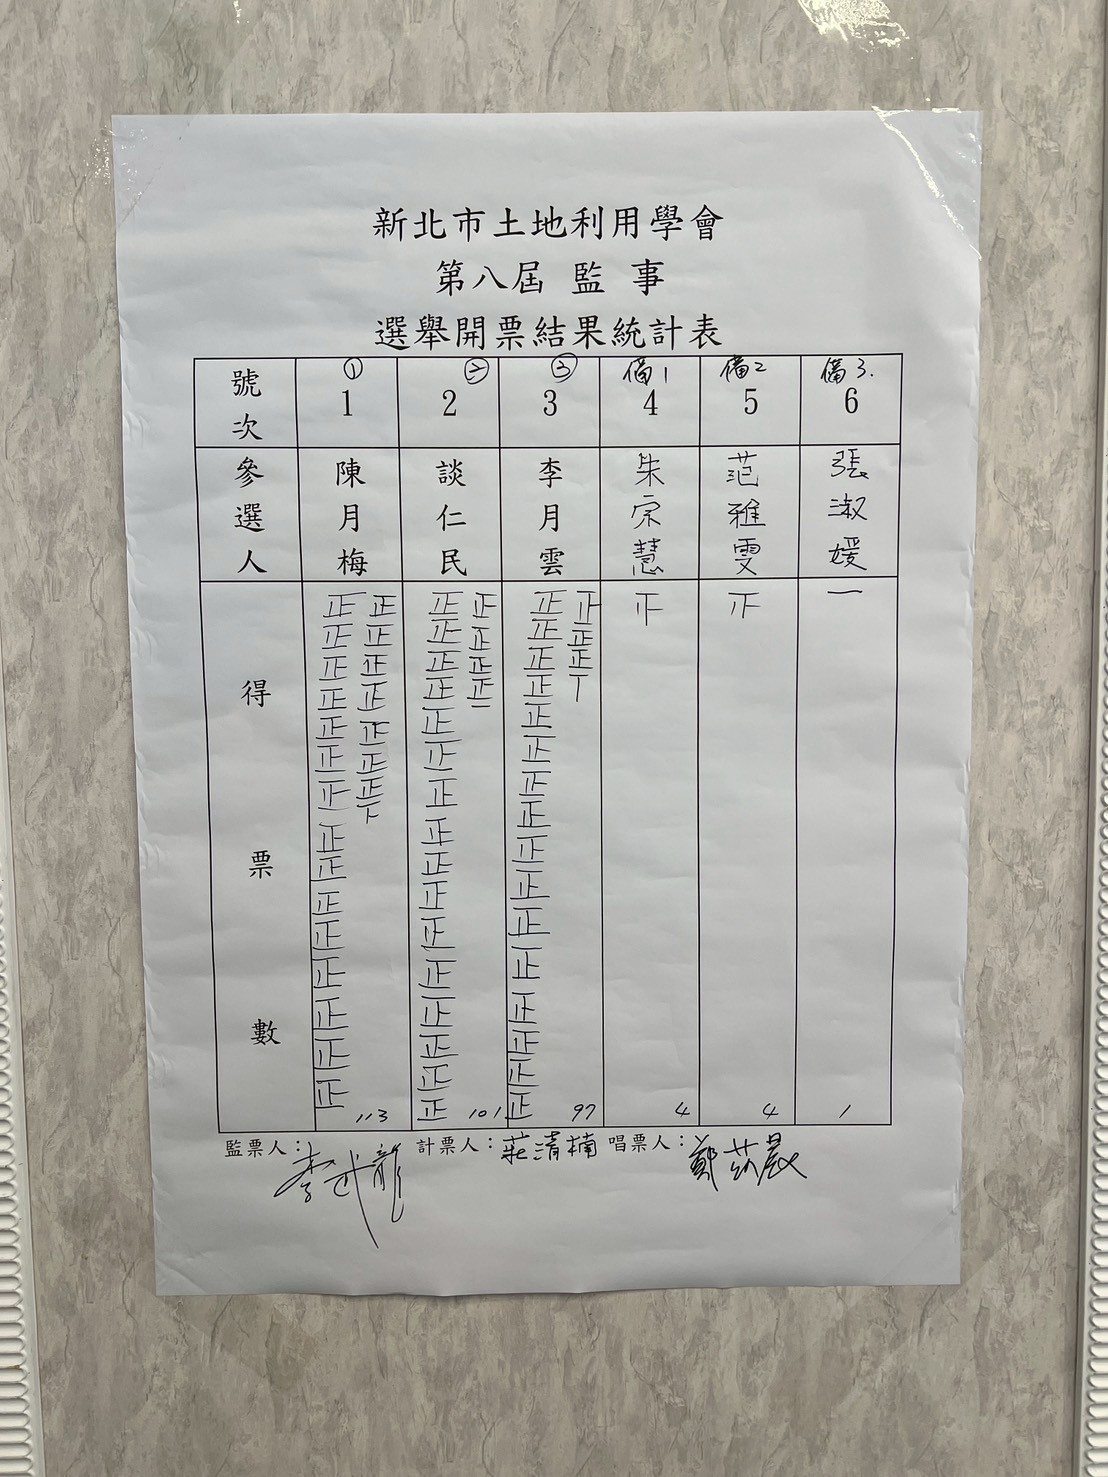 新北市土地利用學會
第八屆 監 事
選舉開票結果統計表
號次 ① 1 ② 2 ③ 3 備1 4 備2 5 備3. 6
參選人 陳月梅 談仁民 李月雲 朱宗慧 范雅雯 張淑媛
得票數 113 101 97 4 4 1
正正 正正 正正 正 正 一
正正 正正 正正
正正 正正 正正
正正 正正 正丅
正正 正 正
正正 正 正
正正 正 正
正 正 正
正 正 正
正 正 正
正 正 正
正 正 正
正 正 正
正 正 正
正 正 正
監票人：李武龍 計票人：莊清楠 唱票人：鄭